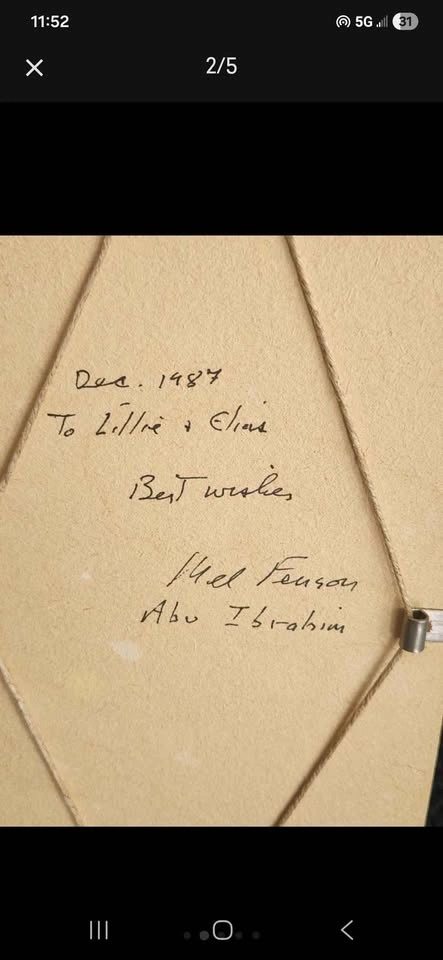 11:52 5G 31
2/5
Dec. 1987
To Lillie & Elias
Best wishes
Mel Fenson
Abu Ibrahim